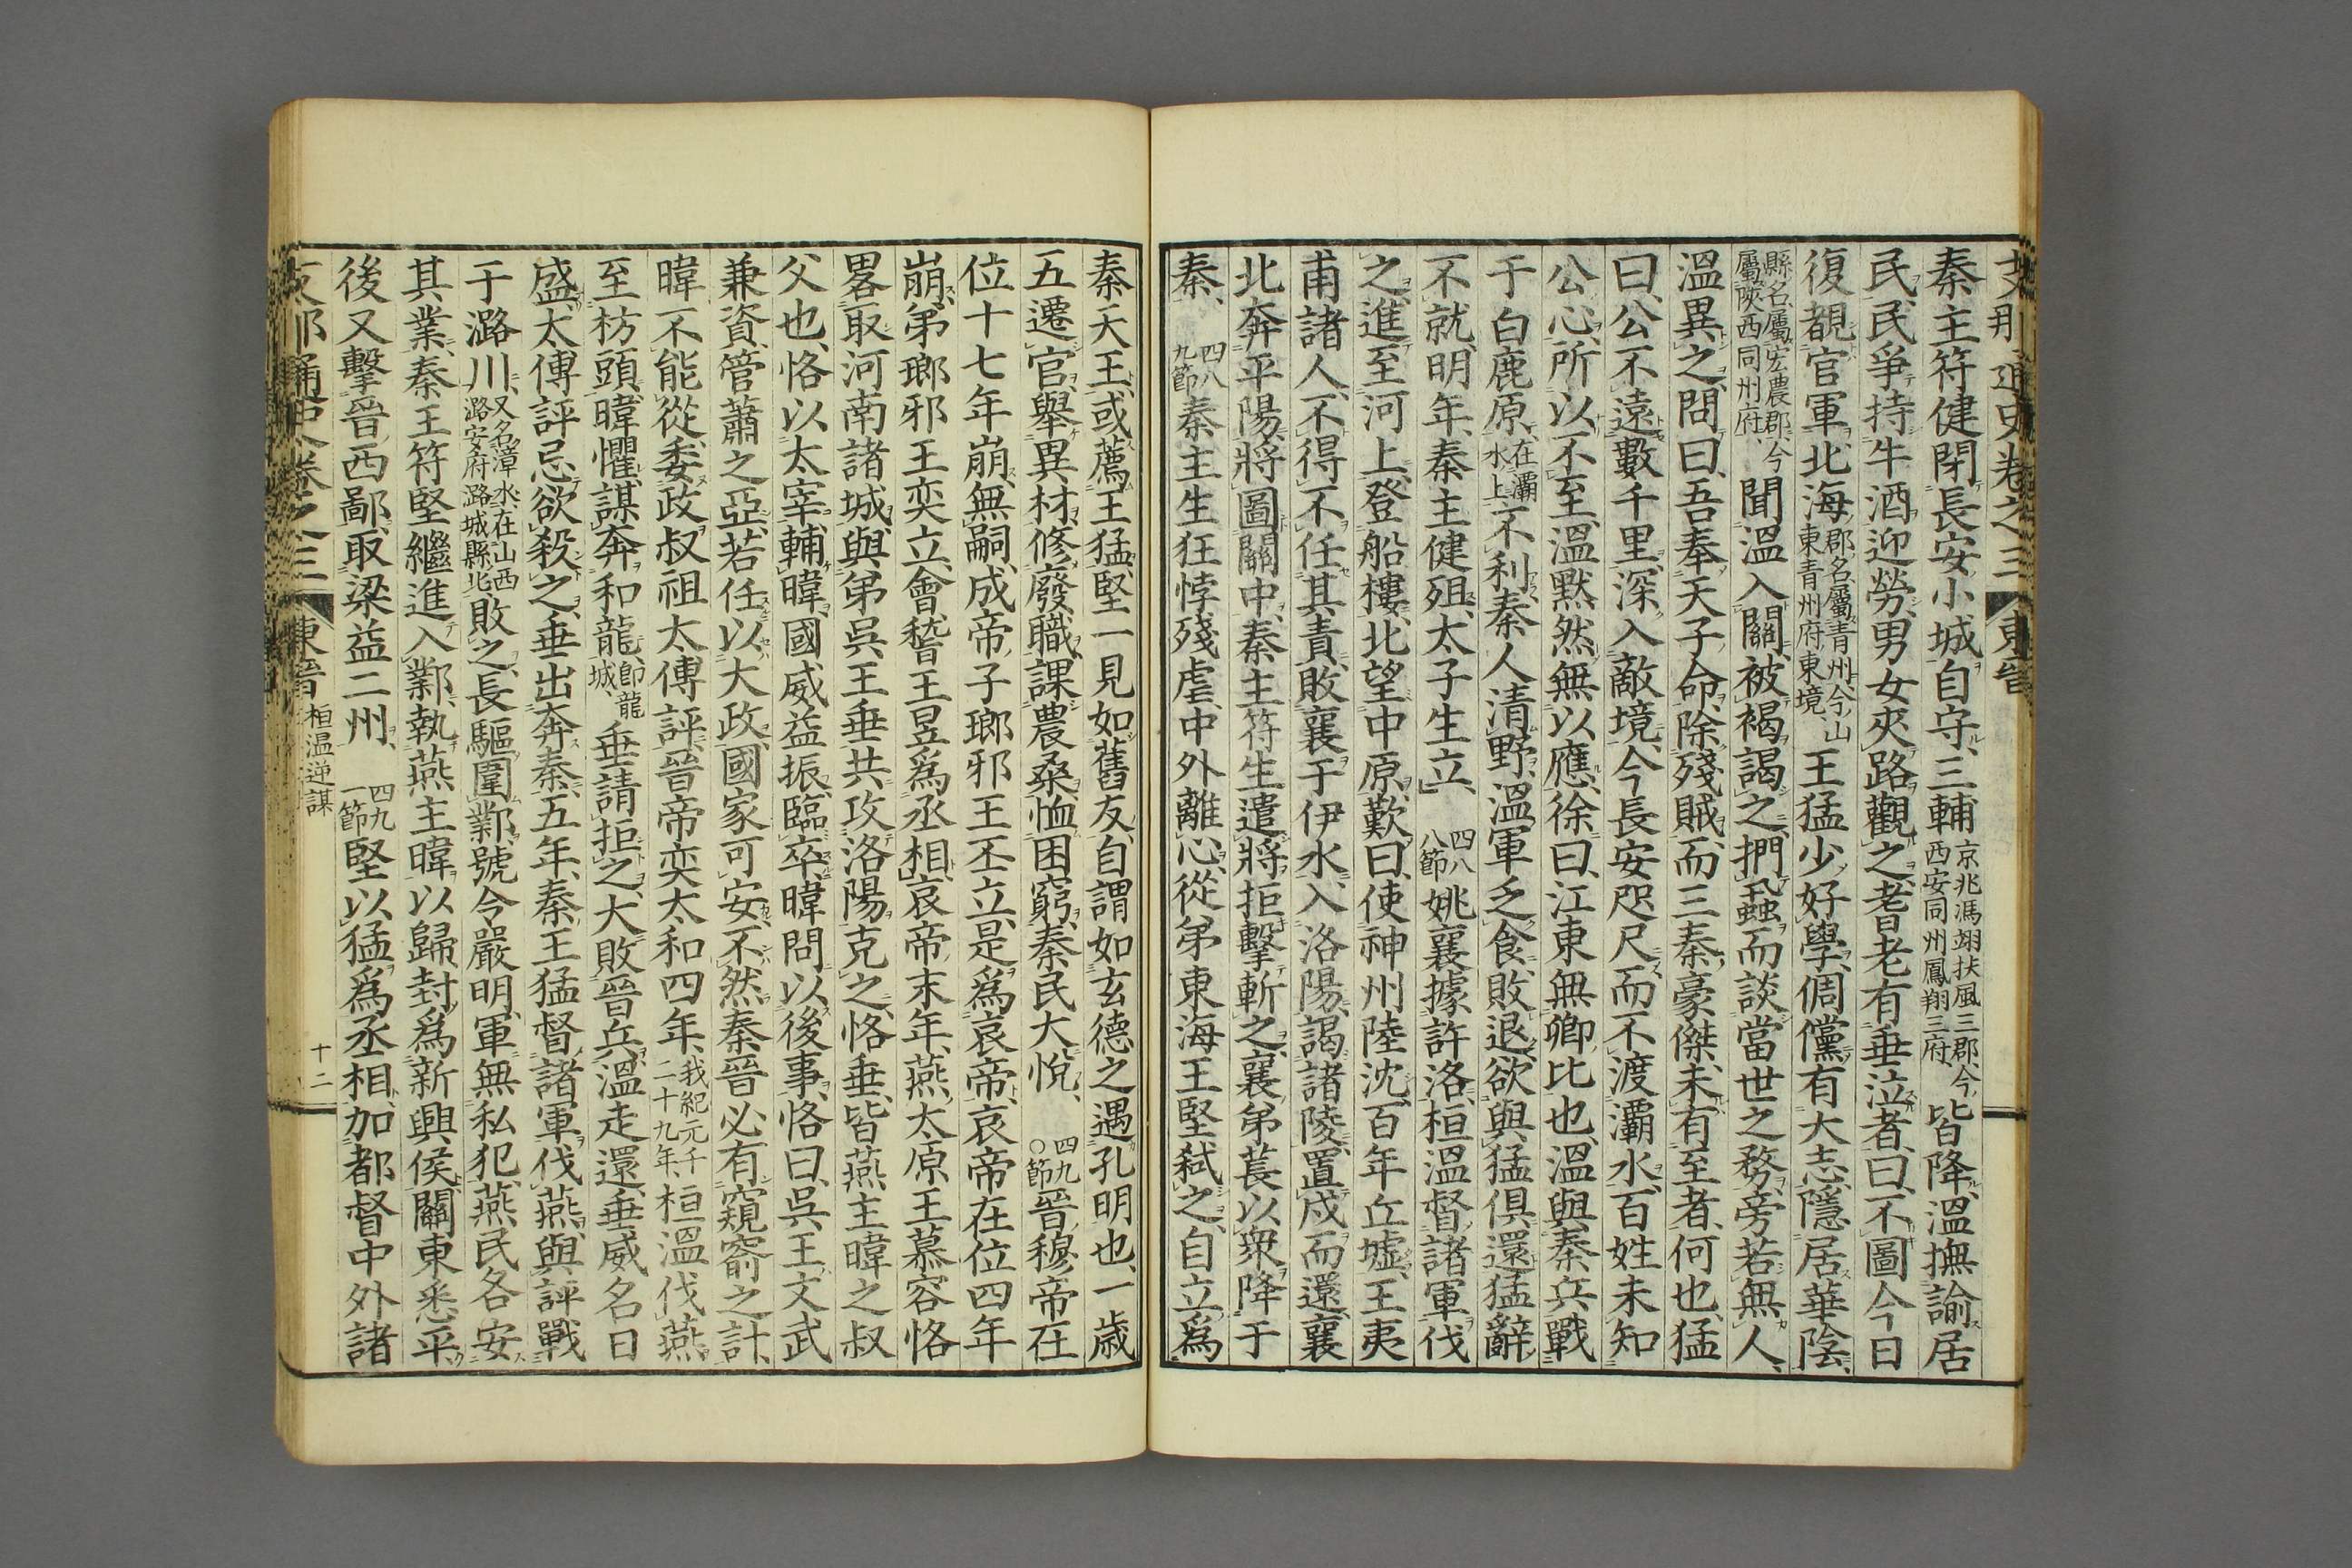 支那通史卷之三 東晉
秦主符健閉長安小城自守、三輔京兆馮翊扶風三郡、今西安同州鳳翔三府、皆降、溫撫諭居
民、民爭持牛酒迎勞、男女夾路觀之、耆老有垂泣者、曰、不圖今日
復覩官軍、北海郡名、屬青州、今山東青州府東境、王猛少好學、倜儻有大志、隱居華陰、
縣名、屬宏農郡、今屬陝西同州府、聞溫入關、被褐謁之、捫虱而談當世之務、旁若無人、
溫異之、問曰、吾奉天子命、除殘賊、而三秦豪傑、未有至者、何也、猛
曰、公不遠數千里、深入敵境、今長安咫尺、而不渡灞水、百姓未知
公心、所以不至、溫默然無以應、徐曰、江東無卿比也、溫與秦兵戰
于白鹿原、在灞水上不利、秦人清野、溫軍乏食、敗退、欲與猛俱還、猛辭
不就、明年、秦主健殂、太子生立、四八八節姚襄據許洛、桓溫督諸軍伐
之、進至河上、登船樓、北望中原、歎曰、使神州陸沈、百年丘墟、王夷
甫諸人、不得不任其責、敗襄于伊水、入洛陽、謁諸陵、置戍而還、襄
北奔平陽、將圖關中、秦主符生遣將拒擊斬之、襄弟萇以衆降于
秦、四八九節秦主生狂悖殘虐、中外離心、從弟東海王堅弒之、自立爲
秦天王、或薦王猛、堅一見如舊友、自謂如玄德之遇孔明也、一歲
五遷官、舉異材、修廢職、課農桑、恤困窮、秦民大悅、四九〇節晉穆帝在
位十七年崩、無嗣、成帝子瑯邪王丕立、是爲哀帝、哀帝在位四年
崩、弟瑯邪王奕立、會稽王昱爲丞相、哀帝末年、燕太原王慕容恪
畧取河南諸城、與弟吳王垂共攻洛陽克之、恪垂皆燕主暐之叔
父也、恪以太宰輔暐、國威益振、臨卒、暐問以後事、恪曰、吳王文武
兼資、管蕭之亞、若任以大政、國家可安、不然秦晉必有窺窬之計、
暐不能從、委政叔祖太傅評、晉帝奕太和四年、我紀元千二十九年、桓溫伐燕
至枋頭、暐懼、謀奔和龍、卽龍城、垂請拒之、大敗晉兵、溫走還、垂威名日
盛、太傅評忌欲殺之、垂出奔秦、五年、秦王猛督諸軍伐燕、與評戰
于潞川、又名漳水、在山西潞安府潞城縣北敗之、長驅圍鄴、號令嚴明、軍無私犯、燕民各安
其業、秦王符堅繼進入鄴、執燕主暐以歸、封爲新興侯、關東悉平
後又擊晉西鄙、取梁益二州、四九一節堅以猛爲丞相、加都督中外諸
支那通史卷之三 東晉 桓溫逆謀 十二